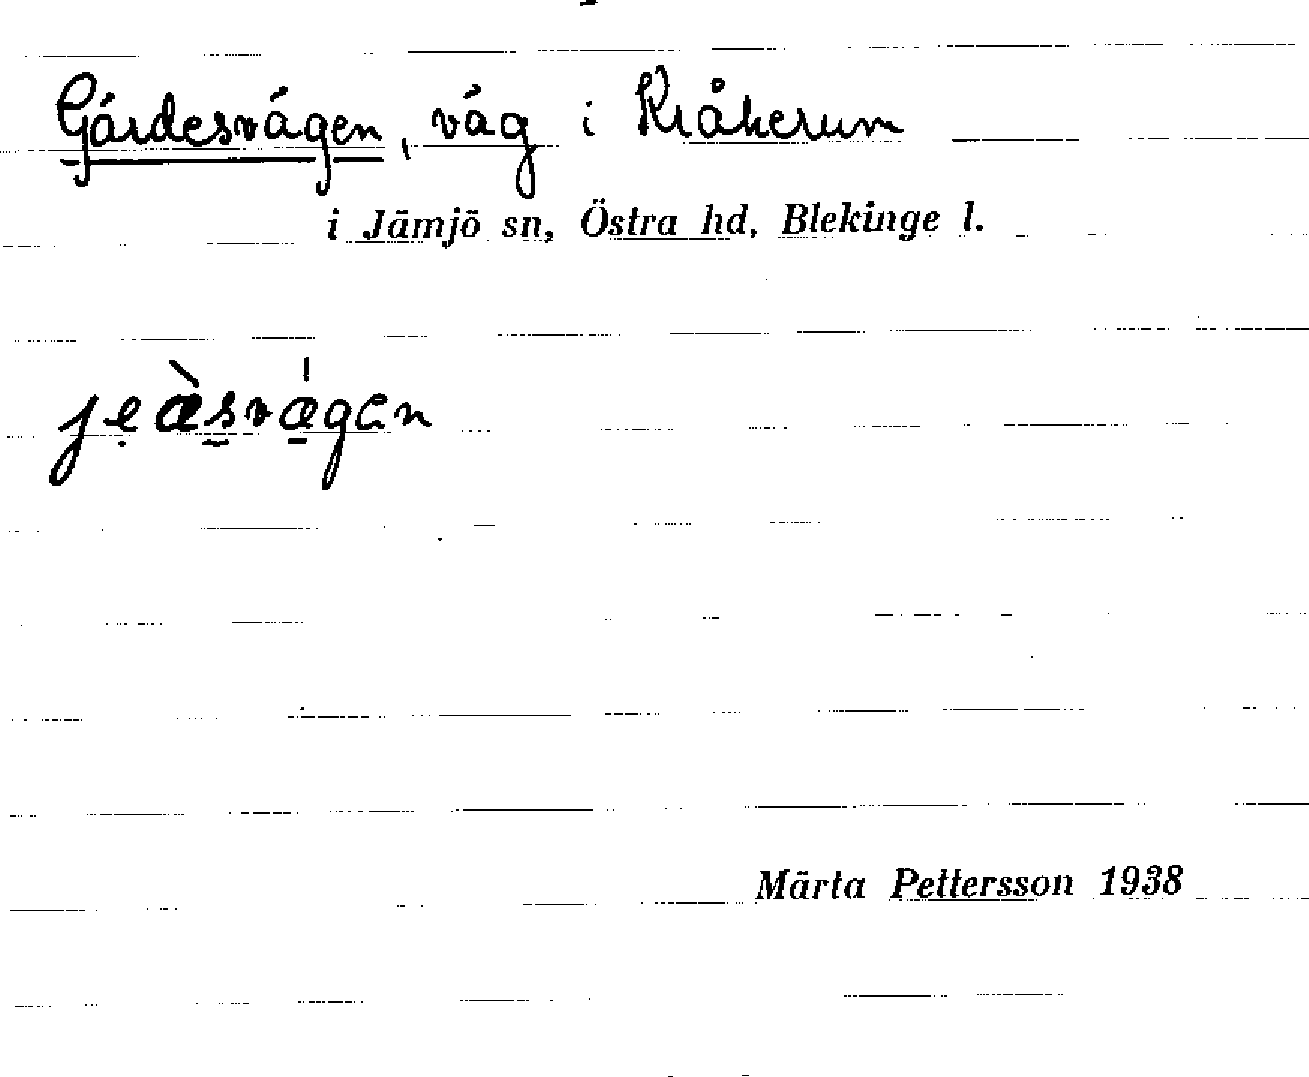 Gärdesvägen, väg i Kråkerum
i Jämjö sn, Östra hd, Blekinge l.
Märta Pettersson 1938